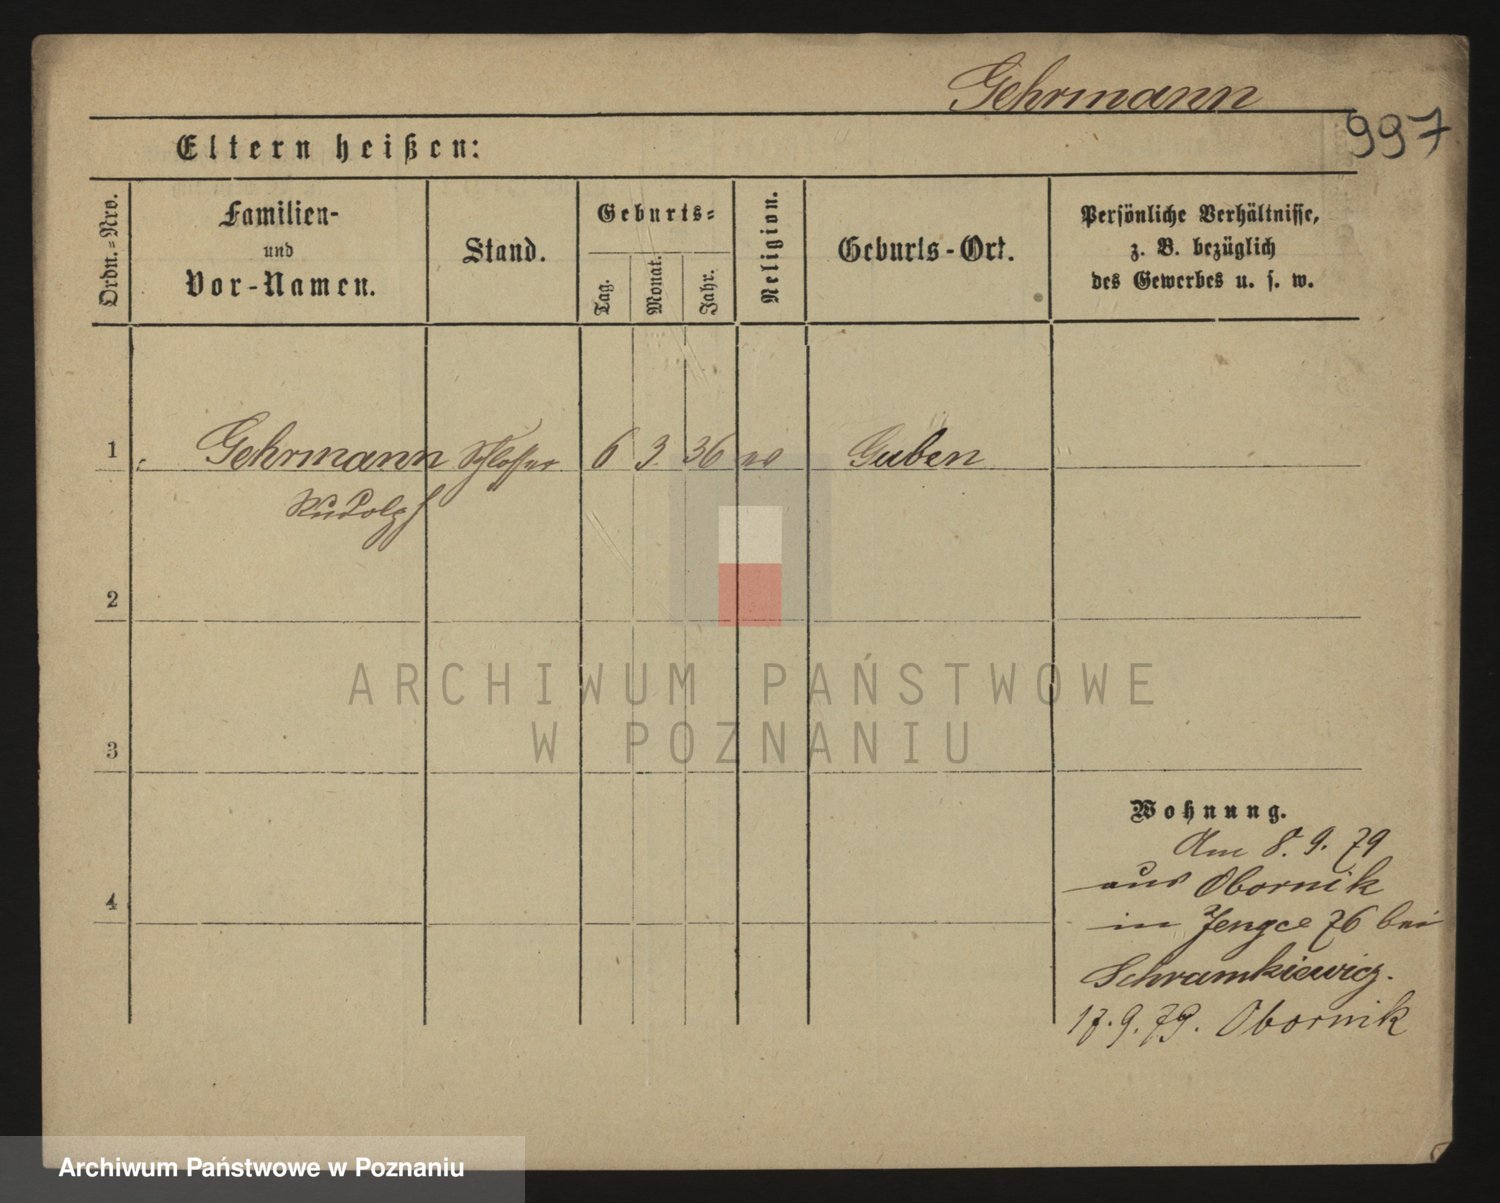 Gehrmann
997
Eltern heißen:
Ordn.=Nro.
Familien-
und
Vor-Namen.
Stand.
Geburts=
Tag.
Monat.
Jahr.
Religion.
Geburts-Ort.
Persönliche Verhältnisse,
z. B. bezüglich
des Gewerbes u. s. w.
1
Gehrmann Schlosser 6 3. 36 ev Guben
Rudolph
2
ARCHIWUM PAŃSTWOWE
W POZNANIU
3
Wohnung.
Am 8. 9. 79
aus Obornik
4
in 76 bei
Schramkiewicz.
17. 9. 79. Obornik
Archiwum Państwowe w Poznaniu